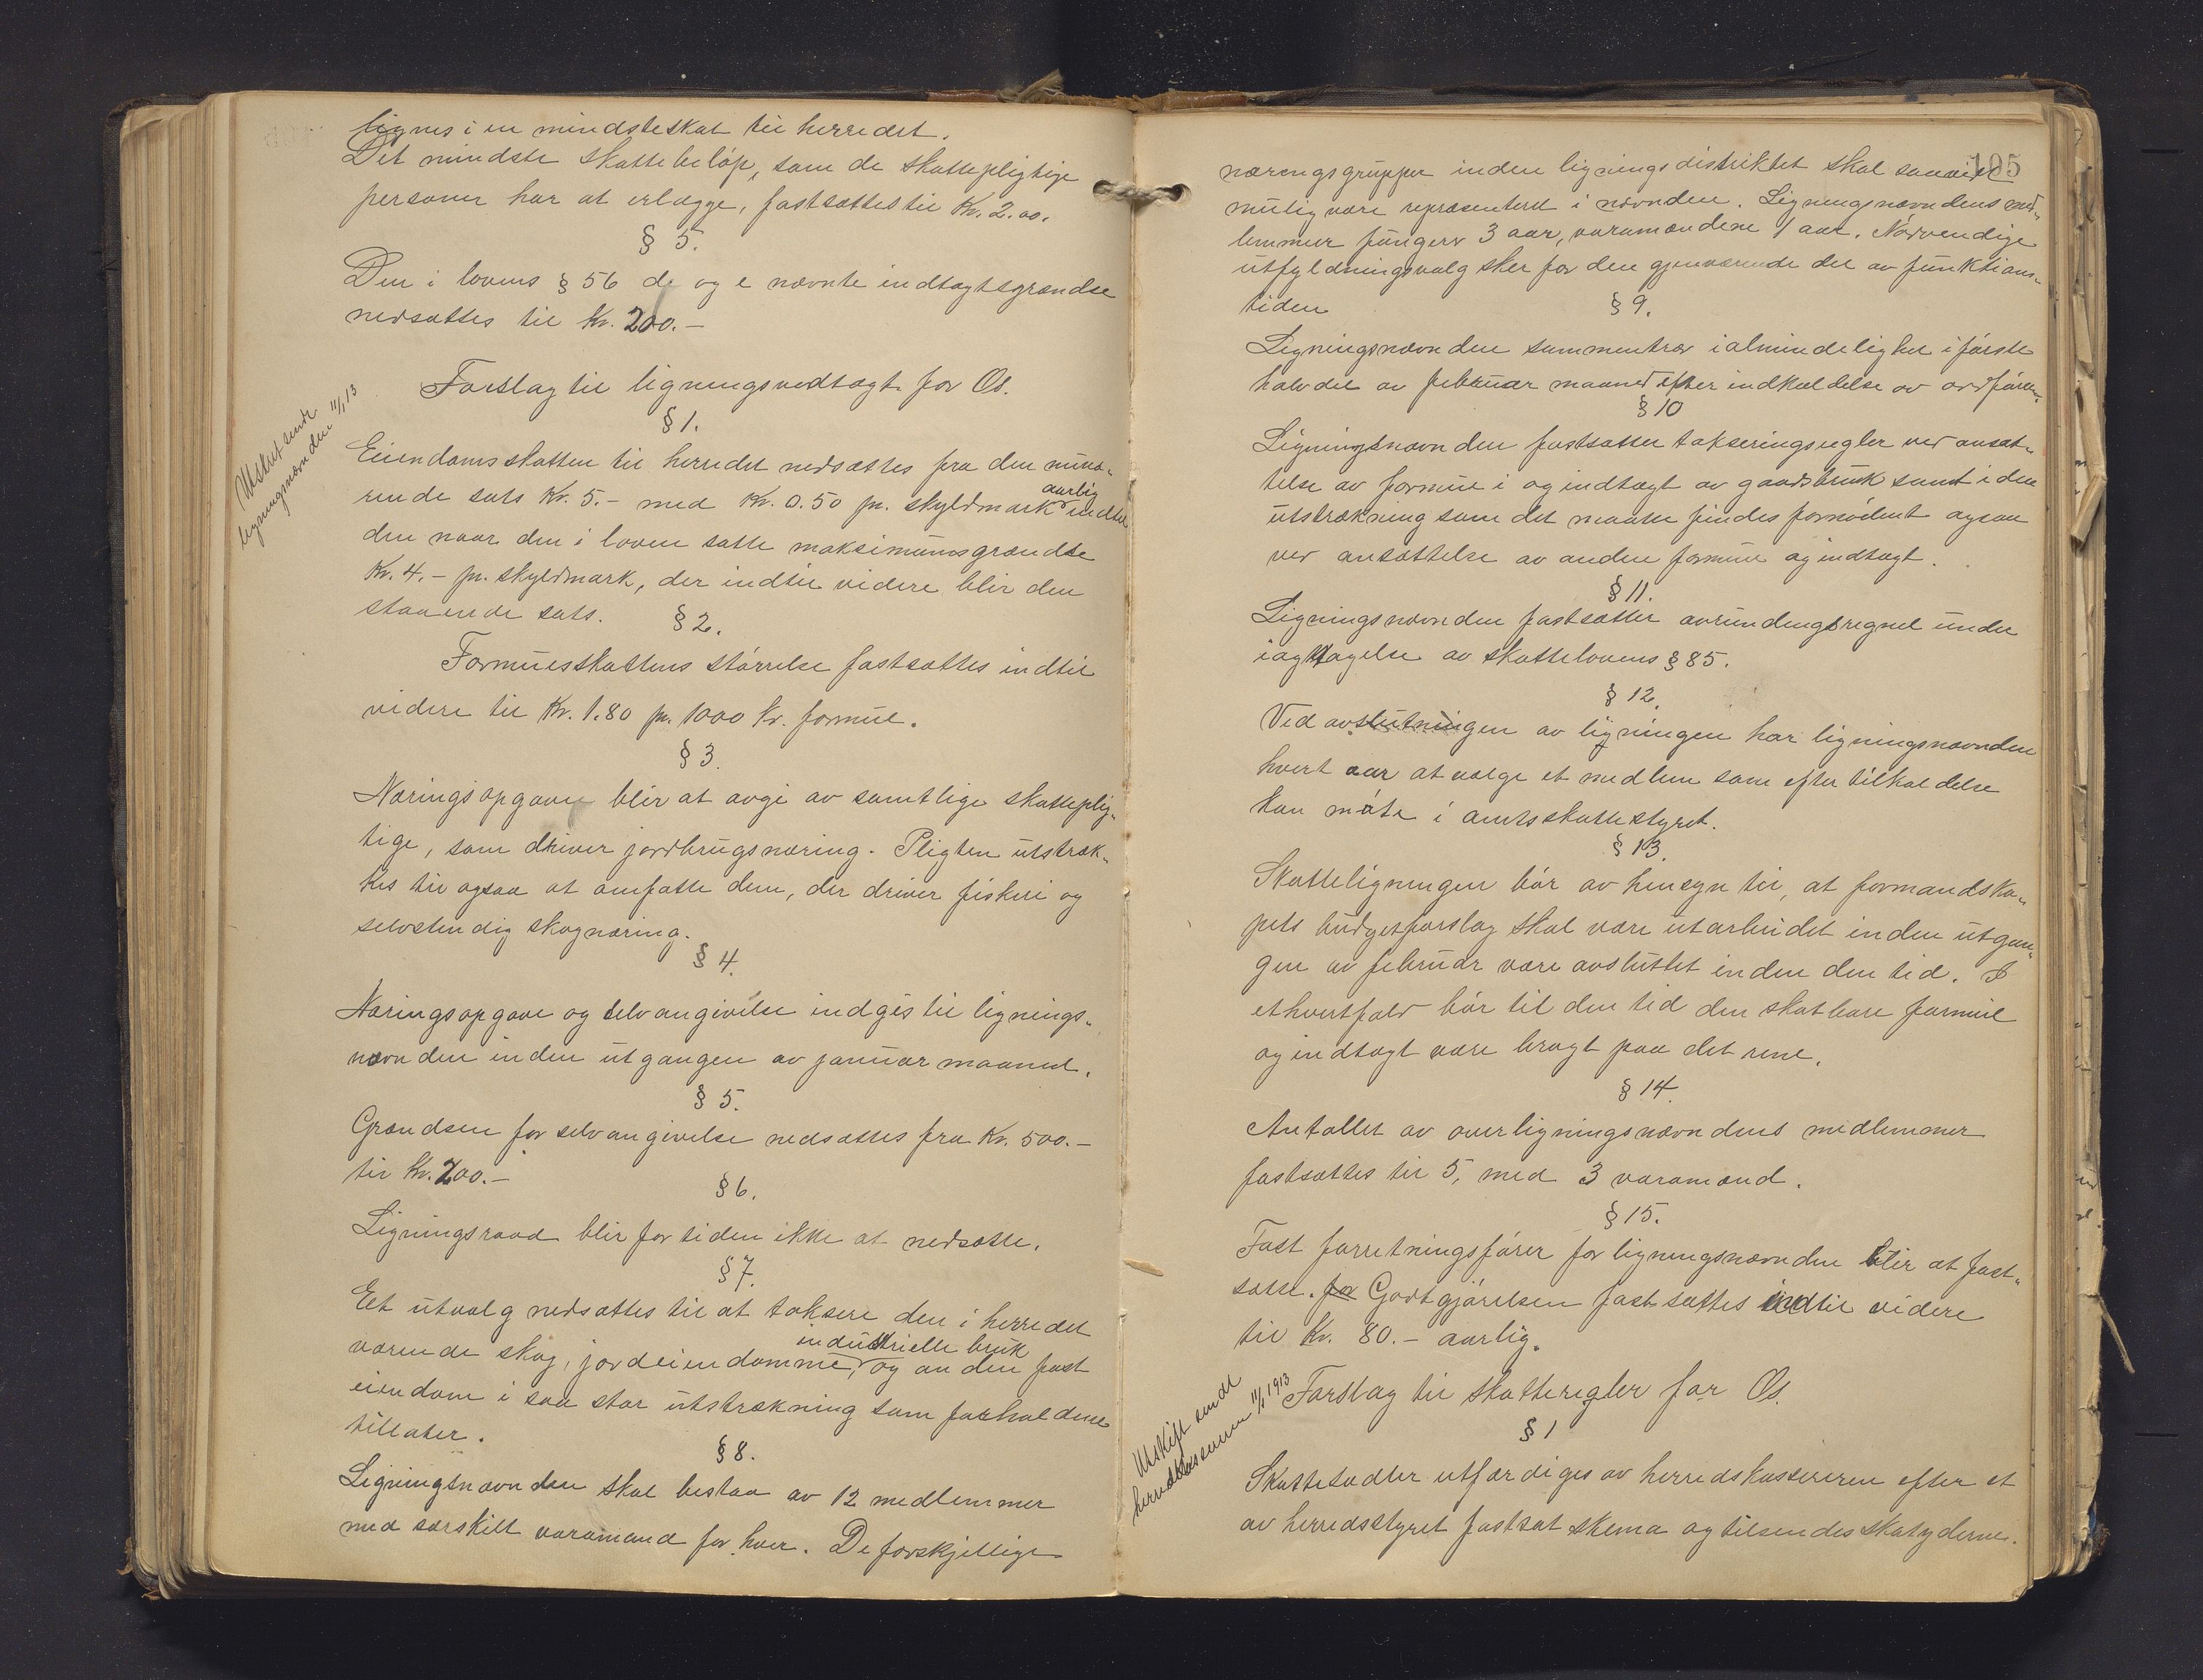 lignes i en mindsteskat til herredet.
Det mindste skattebeløp, som de skattepligtige
personer har at erlægge, fastsættes til Kr. 2.00.
§ 5.
Den i lovens § 56 d. og e nævnte indtægtsgrændse
nedsættes til Kr. 200.-
Utskrift sendt
ligningsnævnden 11/1 13
Forslag til ligningsvedtægt for Os.
§ 1.
Eiendomsskatten til herredet nedsættes fra den nuvæ-
rende sats Kr. 5.- med Kr. 0.50 pr. skyldmark aarlig indtil
den naar den i loven satte maksimumsgrændse
Kr. 4.- pr. skyldmark, der indtil videre blir den
staaende sats.
§ 2.
Formuesskattens størrelse fastsættes indtil
videre til Kr. 1.80 pr. 1000 kr. formue.
§ 3.
Næringsopgave blir at avgi av samtlige skatteplig-
tige, som driver jordbrugsnæring. Pligten utstræk-
kes til ogsaa at omfatte dem, der driver fiskeri og
selvstendig skognæring.
§ 4.
Næringsopgave og selvangivelse indgis til lignings-
nævnden inden utgangen av januar maaned.
§ 5.
Grændsen for selvangivelse nedsættes fra Kr. 500.-
til Kr. 200.-
§ 6.
Ligningsraad blir for tiden ikke at nedsætte.
§ 7.
Eet utvalg nedsættes til at taksere den i herredet
værende skog, jordeiendomme, industrielle bruk og anden fast
eiendom i saa stor utstrækning som forholdene
tillater.
§ 8.
Ligningsnævnden skal bestaa av 12 medlemmer
med særskilt varamand for hver. De forskjellige
105
næringsgrupper inden ligningsdistriktet skal saavidt
mulig være repræsenteret i nævnden. Ligningsnævndens med-
lemmer fungerer 3 aar, varamændene 1 aar. Nødvendige
utfyldningsvalg sker for den gjenværende del av funktions-
tiden
§ 9.
Ligningsnævnden sammentrær i almindelighet i første
halvdel av februar maaned efter indkaldelse av ordføreren.
§ 10
Ligningsnævnden fastsætter takseringsregler ved ansæt-
telse av formue i og indtægt av gaardsbruk samt i den
utstrækning som det maatte findes fornødent ogsaa
ved ansættelse av anden formue og indtægt.
§ 11.
Ligningsnævnden fastsætter avrundingsregnel under
iagttagelse av skattelovens § 85.
§ 12.
Ved avslutningen av ligningen har ligningsnævnden
hvert aar at vælge et medlem som efter tilkaldelse
kan møte i amtsskattestyret.
§ 13.
Skatteligningen bør av hensyn til, at formandska-
pets budgetforslag skal være utarbeidet inden utgan-
gen av februar være avsluttet inden den tid. I
ethvertfald bør til den tid den skatbare formue
og indtægt være bragt paa det rene.
§ 14.
Antallet av overligningsnævndens medlemmer
fastsættes til 5, med 3 varamænd.
§ 15.
Fast forretningsfører for ligningsnævnden blir at fast-
sætte. for Godtgjørelsen fastsættes indtil videre
til Kr. 80.- aarlig.
Utskift sendt
herredskassereren 11/1 1913
Forslag til skatteregler for Os.
§ 1
Skattesedler utfærdiges av herredskassereren efter et
av herredsstyret fastsat skema og tilsendes skatyderne.